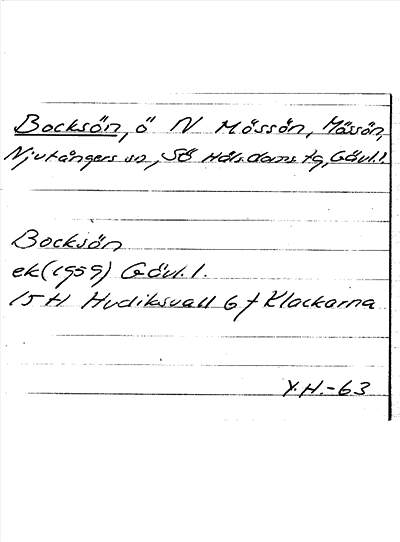 Bocksön, ö N Mössön, Mössön,
Njutångers sn, Sö Häls. doms. tg, Gävl. l.
Bocksön
ek (1959) Gävl. l.
15 H Hudiksvall 6 f Klackarna
Y.H.-63